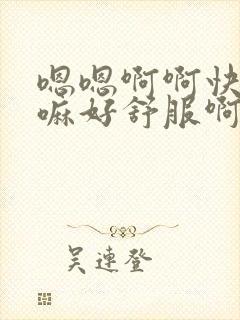 嗯嗯啊啊快
嘛好舒服啊
吴连登